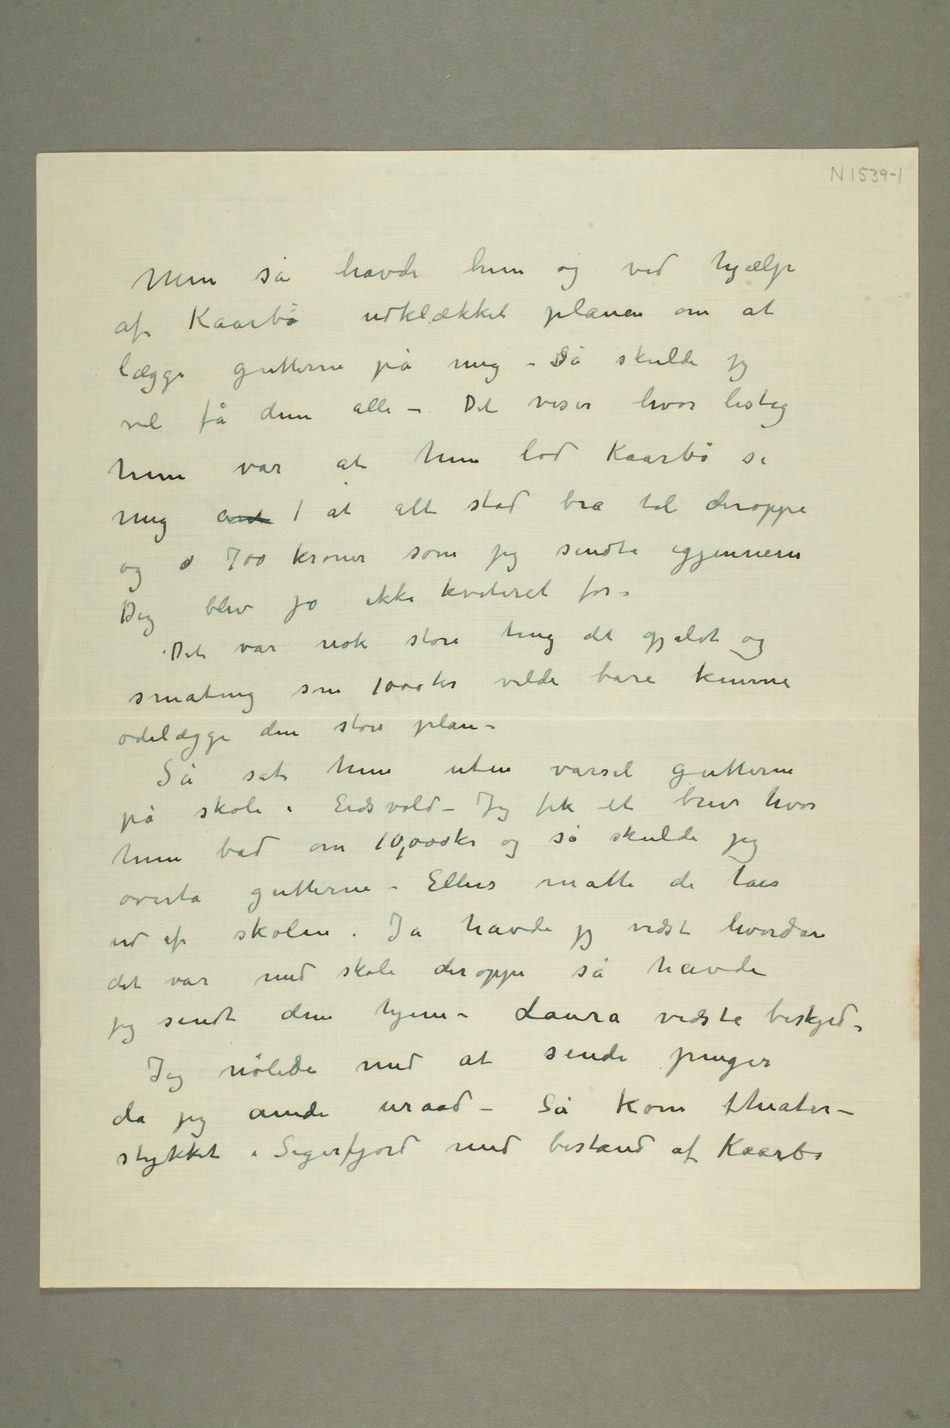 N 1539-1
Men så havde hun og ved hjælp
af Kaarbø udklækket planen om at
lægge gutterne på mig – Så skulde jg
vel få dem alle – Det viser hvor listig
hun var at hun lod Kaarbø si
mig at alt stod bra til deroppe
og 700 kroner som jeg sendte igjennem
Dig blev jo ikke kviteret for –
Det var nok store ting det gjaldt og
småting som 1000kr vilde bare kunne
ødelægge den store plan –
Så sat hun uten varsel gutterne
på skole i Eidsvold – Jeg fik et brev hvor
hun bad om 10,000kr og så skulde jeg
overta gutterne – Ellers måtte de taes
ud af skolen. Ja havde jg vidst hvordan
det var med skole deroppe så havde
jg sendt dem hjem – Laura vidste beskjed –
Jeg nølede med at sende penger
da jeg anede uraad – Så kom theater–
stykket i Sigerfjord med bistand af Kaarbø